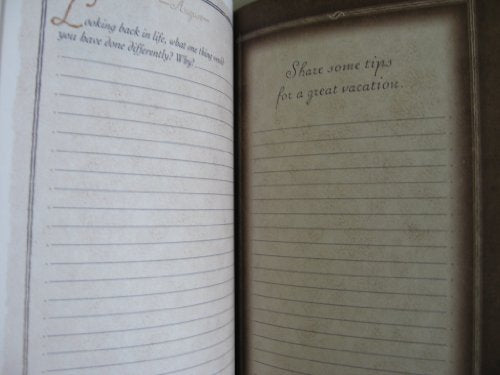 August
Looking back in life, what one thing would
you have done differently? Why?
Share some tips
for a great vacation.